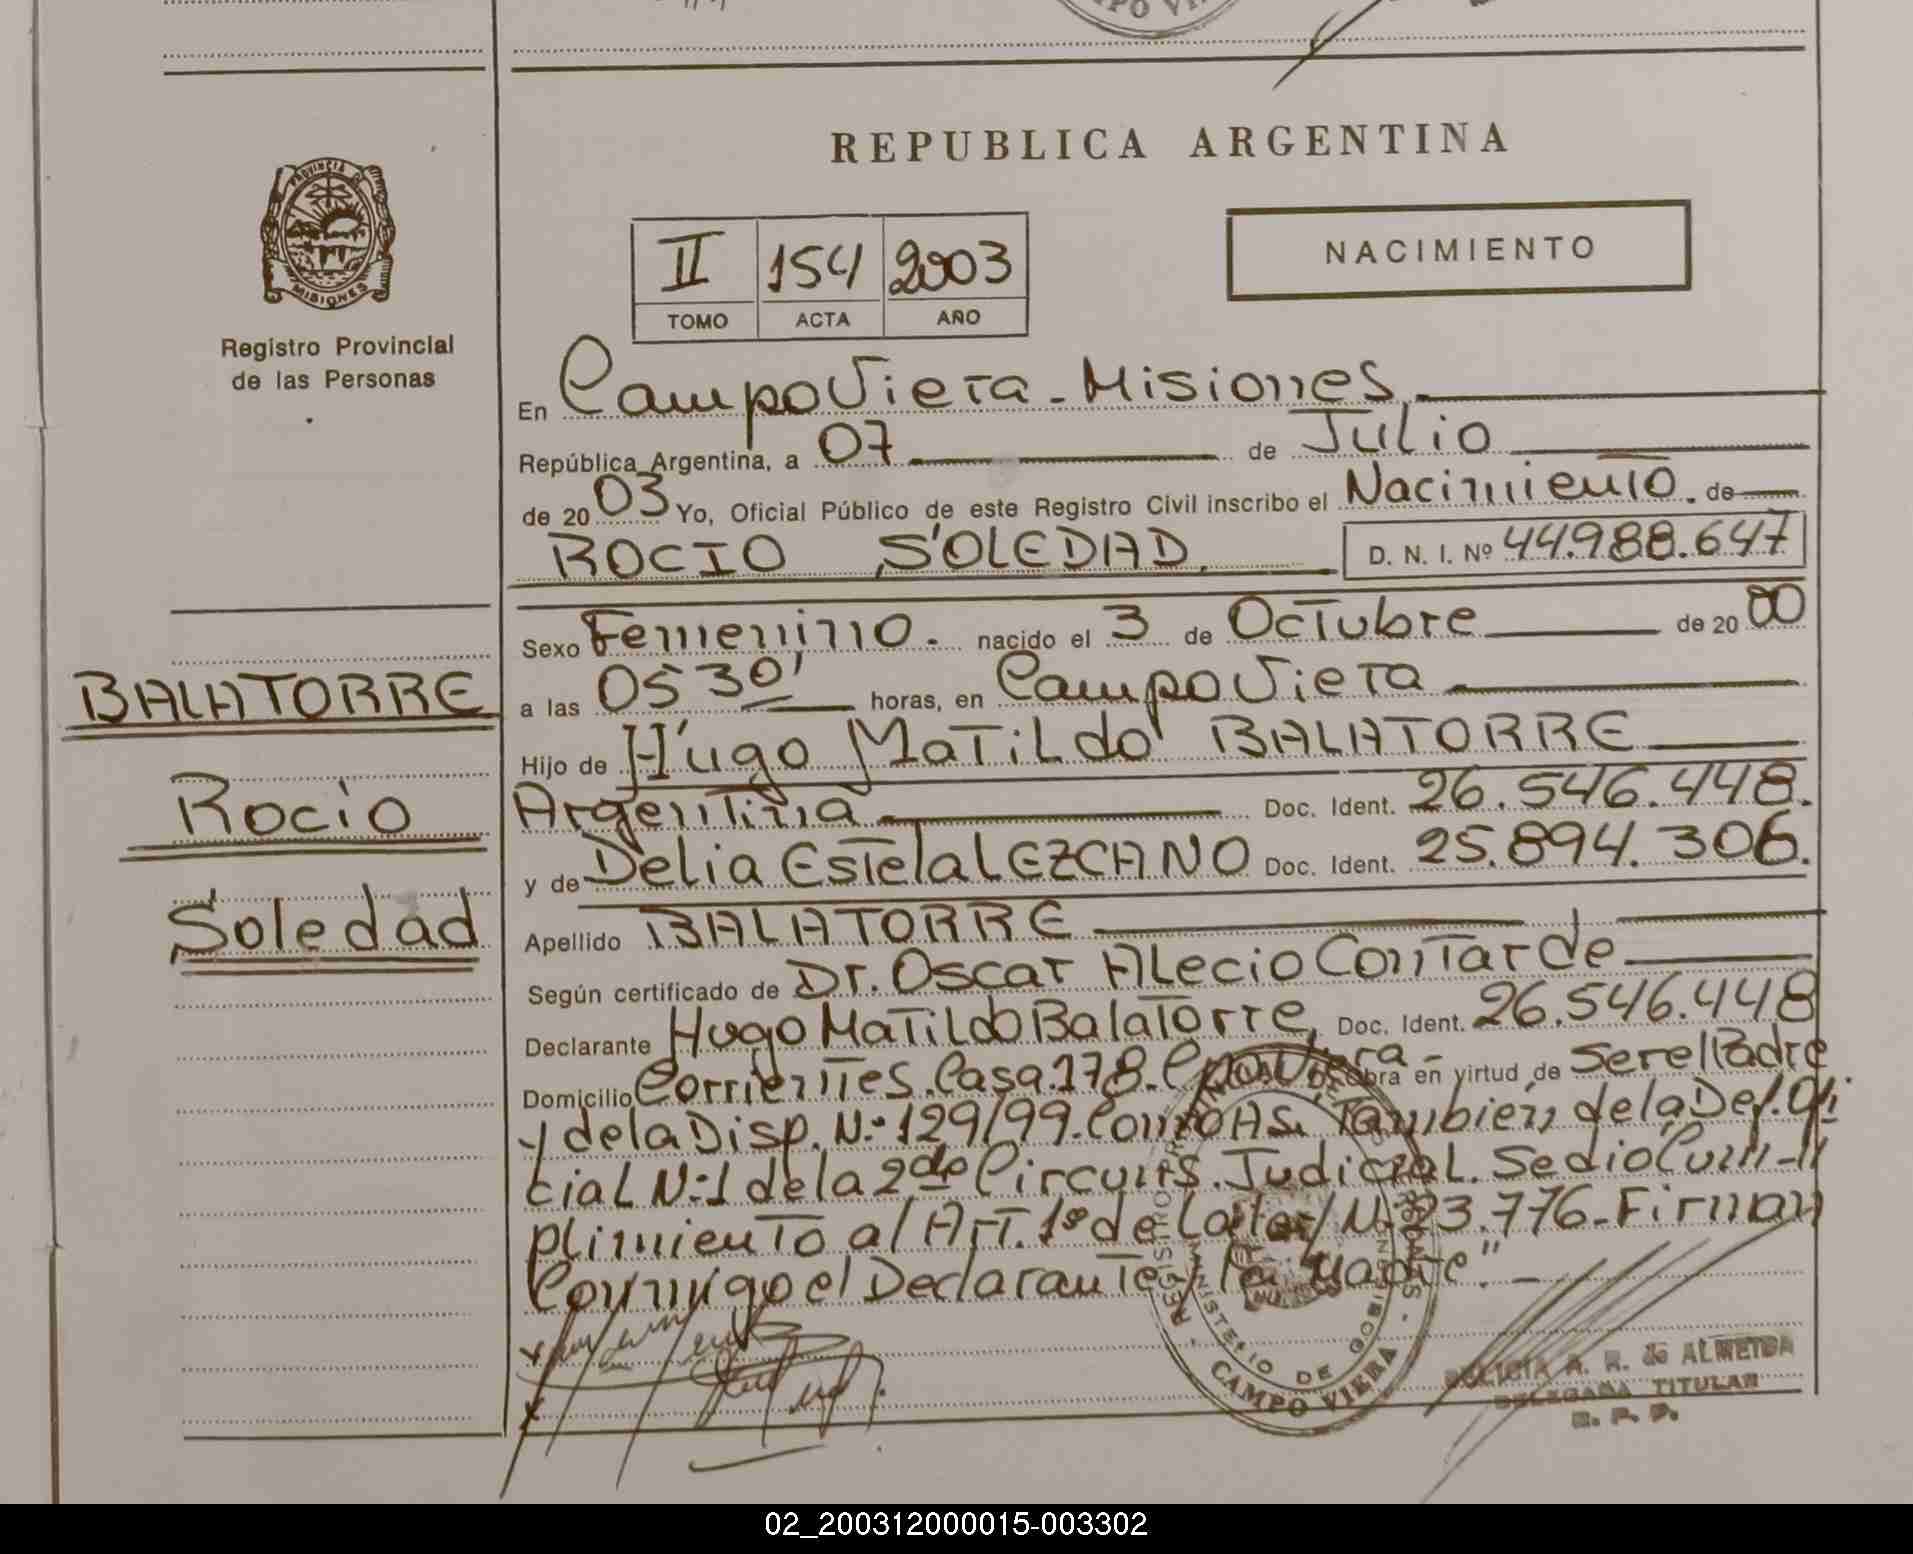 REPUBLICA ARGENTINA
PROVINCIA DE
MISIONES
Registro Provincial
de las Personas
II 154 2003
TOMO ACTA AÑO
NACIMIENTO
En Campo Viera - Misiones
República Argentina, a 07 de Julio
de 2003 Yo, Oficial Público de este Registro Civil inscribo el Nacimiento. de
ROCIO SOLEDAD. D. N. I. Nº 44.988.647
Sexo Femenino. nacido el 3 de Octubre de 2000
a las 05 30' horas, en Campo Viera
Hijo de Hugo Matildo BALATORRE
Argentina Doc. Ident. 26.546.448.
y de Delia Estela LEZCANO Doc. Ident. 25.894.306.
Apellido BALATORRE
Según certificado de Dr. Oscar Alecio Contarde
Declarante Hugo Matildo Balatorre, Doc. Ident. 26.546.448
Domicilio Corrientes. Casa.178. Cpo Viera - Obra en virtud de ser el Padre
y de la Disp. N:º 129/99. Como As. También de la Def. Ofi
cial N:1 de la 2da Circuns. Judicial. Se dió Cum-
plimiento al Art. 1º de la Ley N: 23.776 - Firman
Conmigo el Declarante y la Madre." -
BALATORRE
Rocio
Soledad
MINISTERIO DE GOBIERNO
CAMPO VIERA
A. R. de ALMEIDA
DELEGADA TITULAR
R. P. P.
02_200312000015-003302